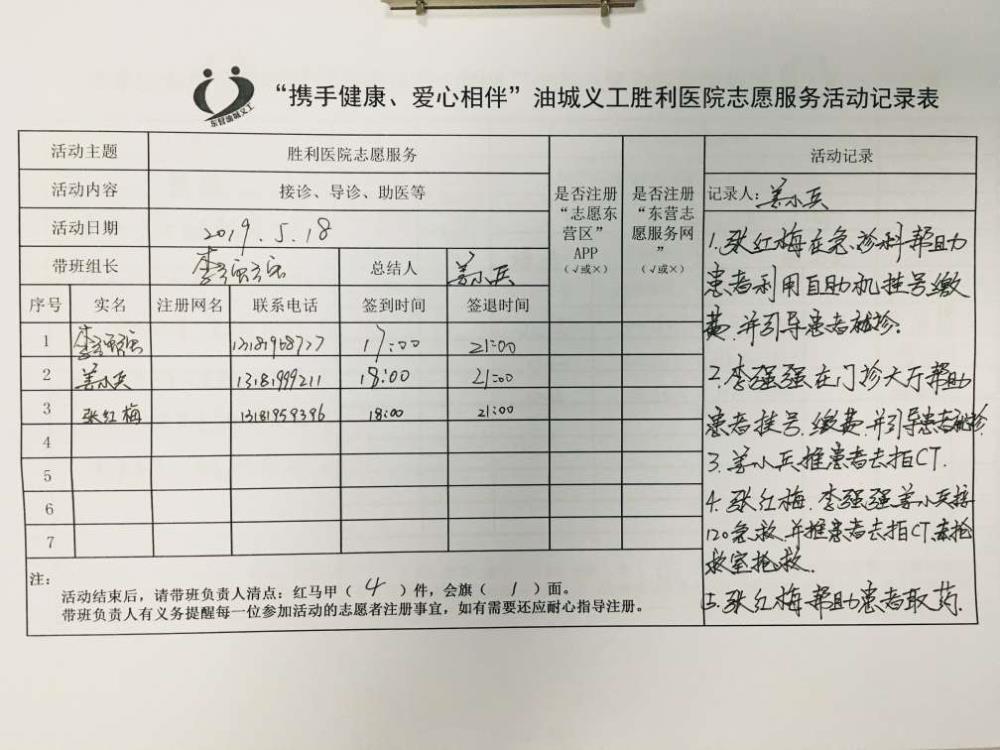 东营油城义工
“携手健康、爱心相伴”油城义工胜利医院志愿服务活动记录表
活动主题 胜利医院志愿服务
活动内容 接诊、导诊、助医等
活动日期 2019.5.18
带班组长 李强强 总结人 姜小兵
是否注册
“志愿东
营区”
APP
(√或×)
是否注册
“东营志
愿服务网
”
(√或×)
序号 实名 注册网名 联系电话 签到时间 签退时间
1 李强强 13181968777 17:00 21:00
2 姜小兵 13181999211 18:00 21:00
3 张红梅 13181959396 18:00 21:00
4
5
6
7
注:
活动结束后,请带班负责人清点:红马甲( 4 )件,会旗( 1 )面。
带班负责人有义务提醒每一位参加活动的志愿者注册事宜,如有需要还应耐心指导注册。
活动记录
记录人:姜小兵
1.张红梅在急诊科帮助
患者利用自助机挂号缴
费.并引导患者就诊.
2.李强强在门诊大厅帮助
患者挂号.缴费.并引导患者就诊
3.姜小兵推患者去拍CT.
4.张红梅.李强强姜小兵接
120急救.并推患者去拍CT.去抢
救室抢救.
5.张红梅帮助患者取药.